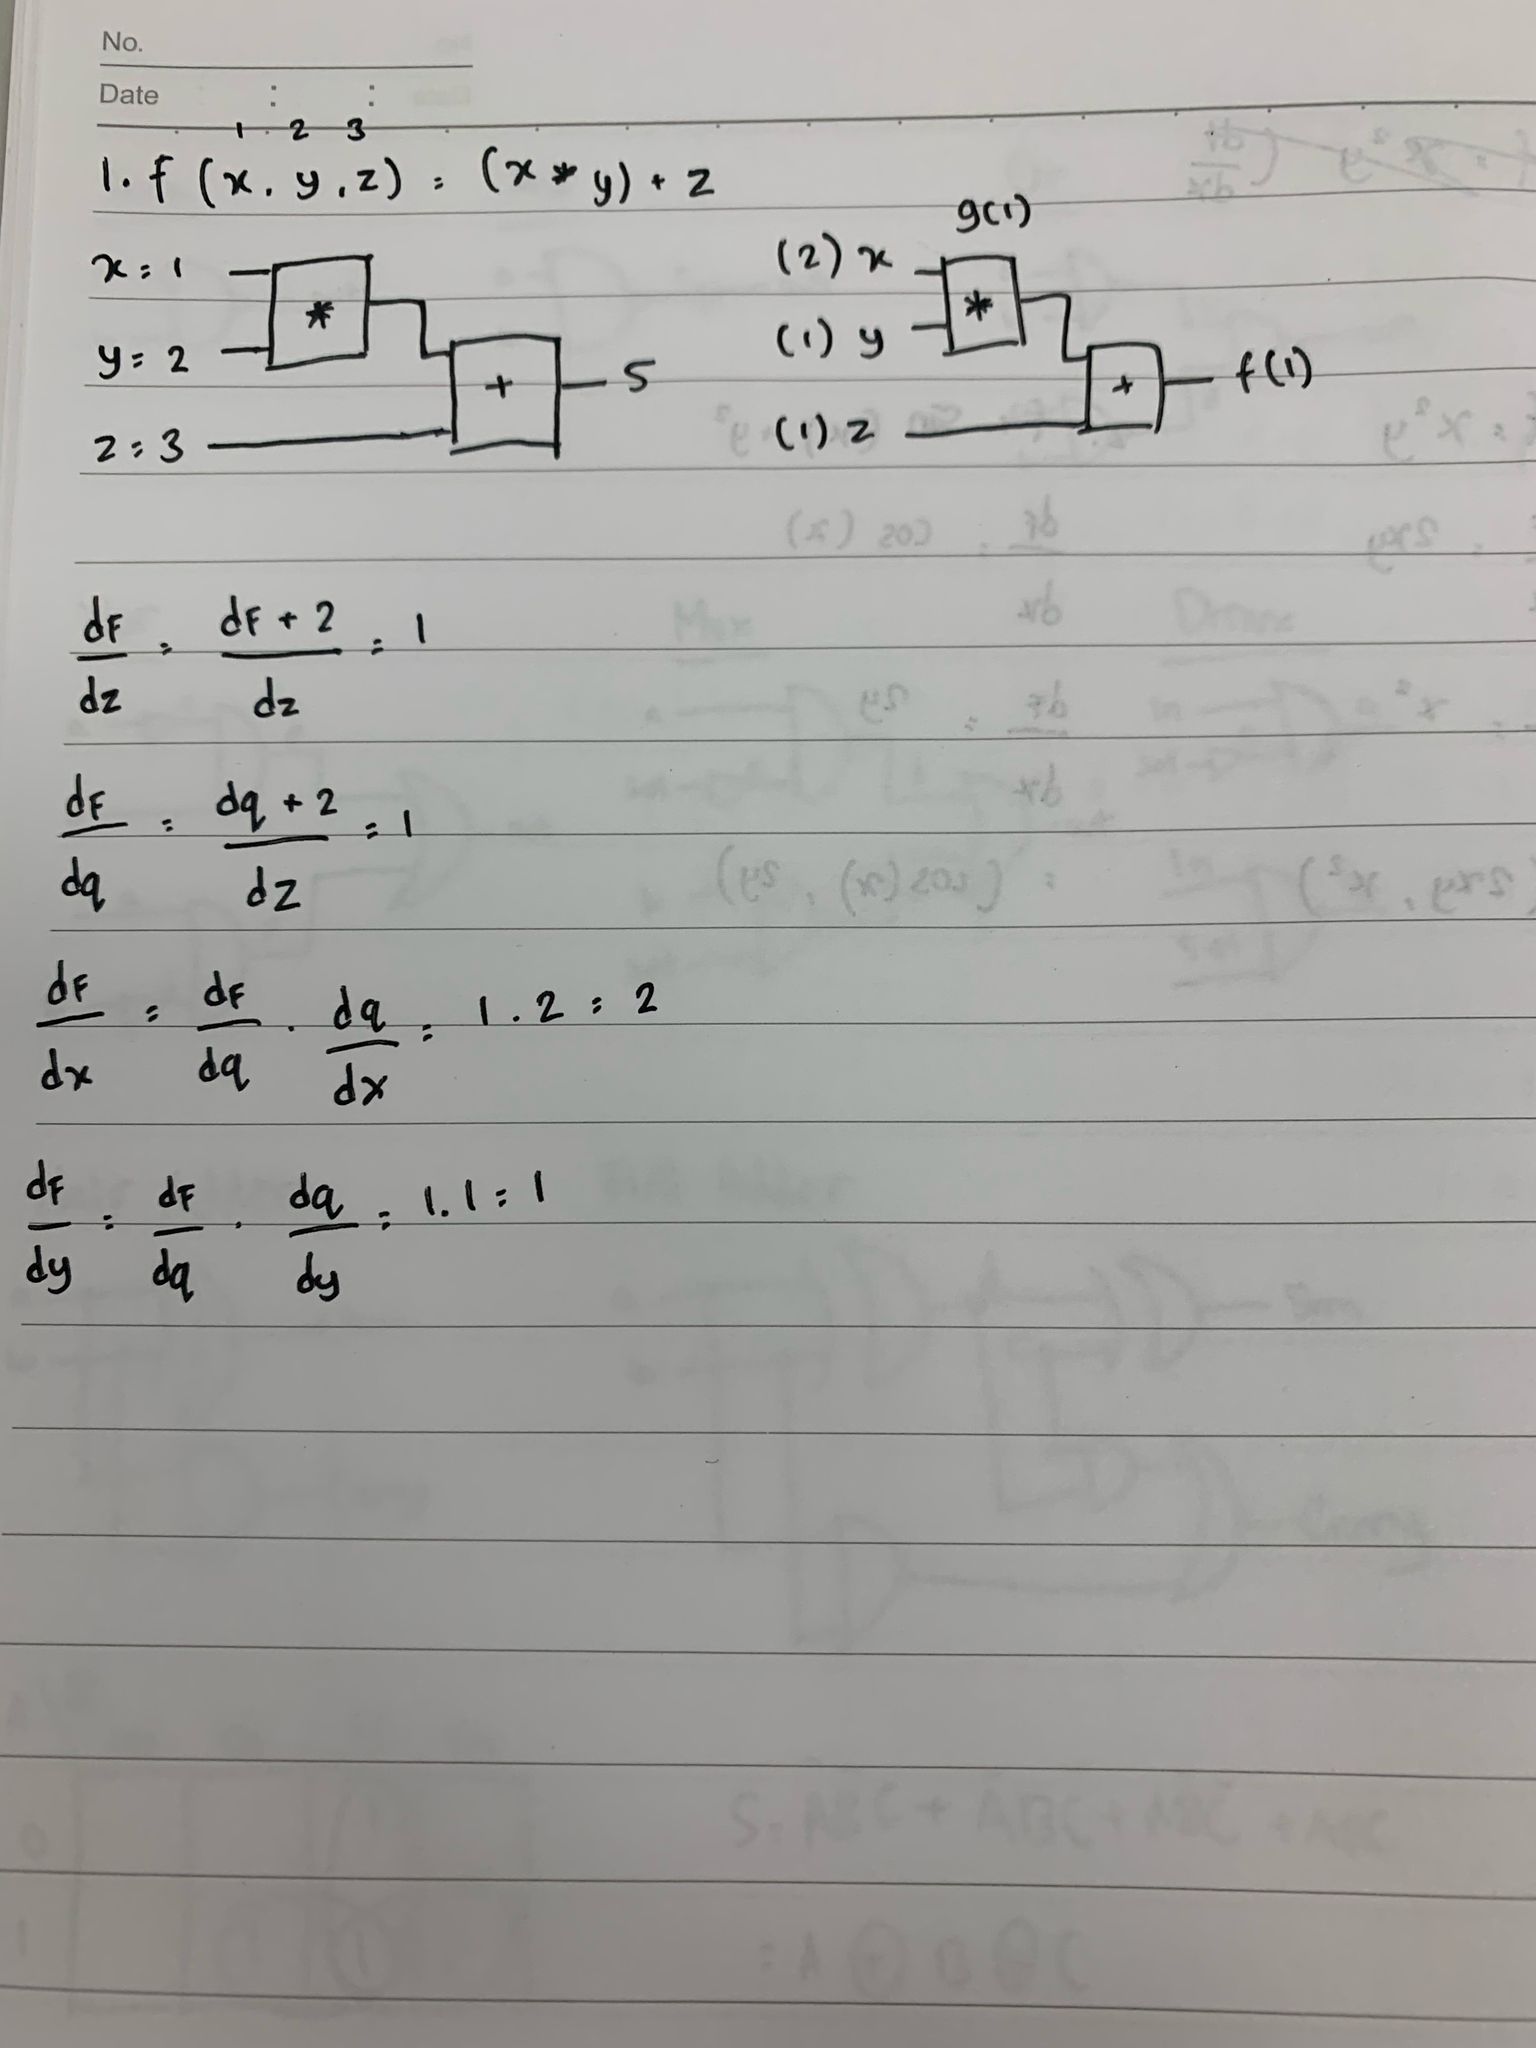 No.
Date : :
1 2 3
1. f (x, y, z) = (x * y) + z
x = 1
*
y = 2
+
5
z = 3
g(1)
(2) x
*
(1) y
+
f(1)
(1) z
dF/dz = dF + 2/dz = 1
dF/dq = dq + 2/dz = 1
dF/dx = dF/dq . dq/dx = 1 . 2 = 2
dF/dy = dF/dq . dq/dy = 1 . 1 = 1